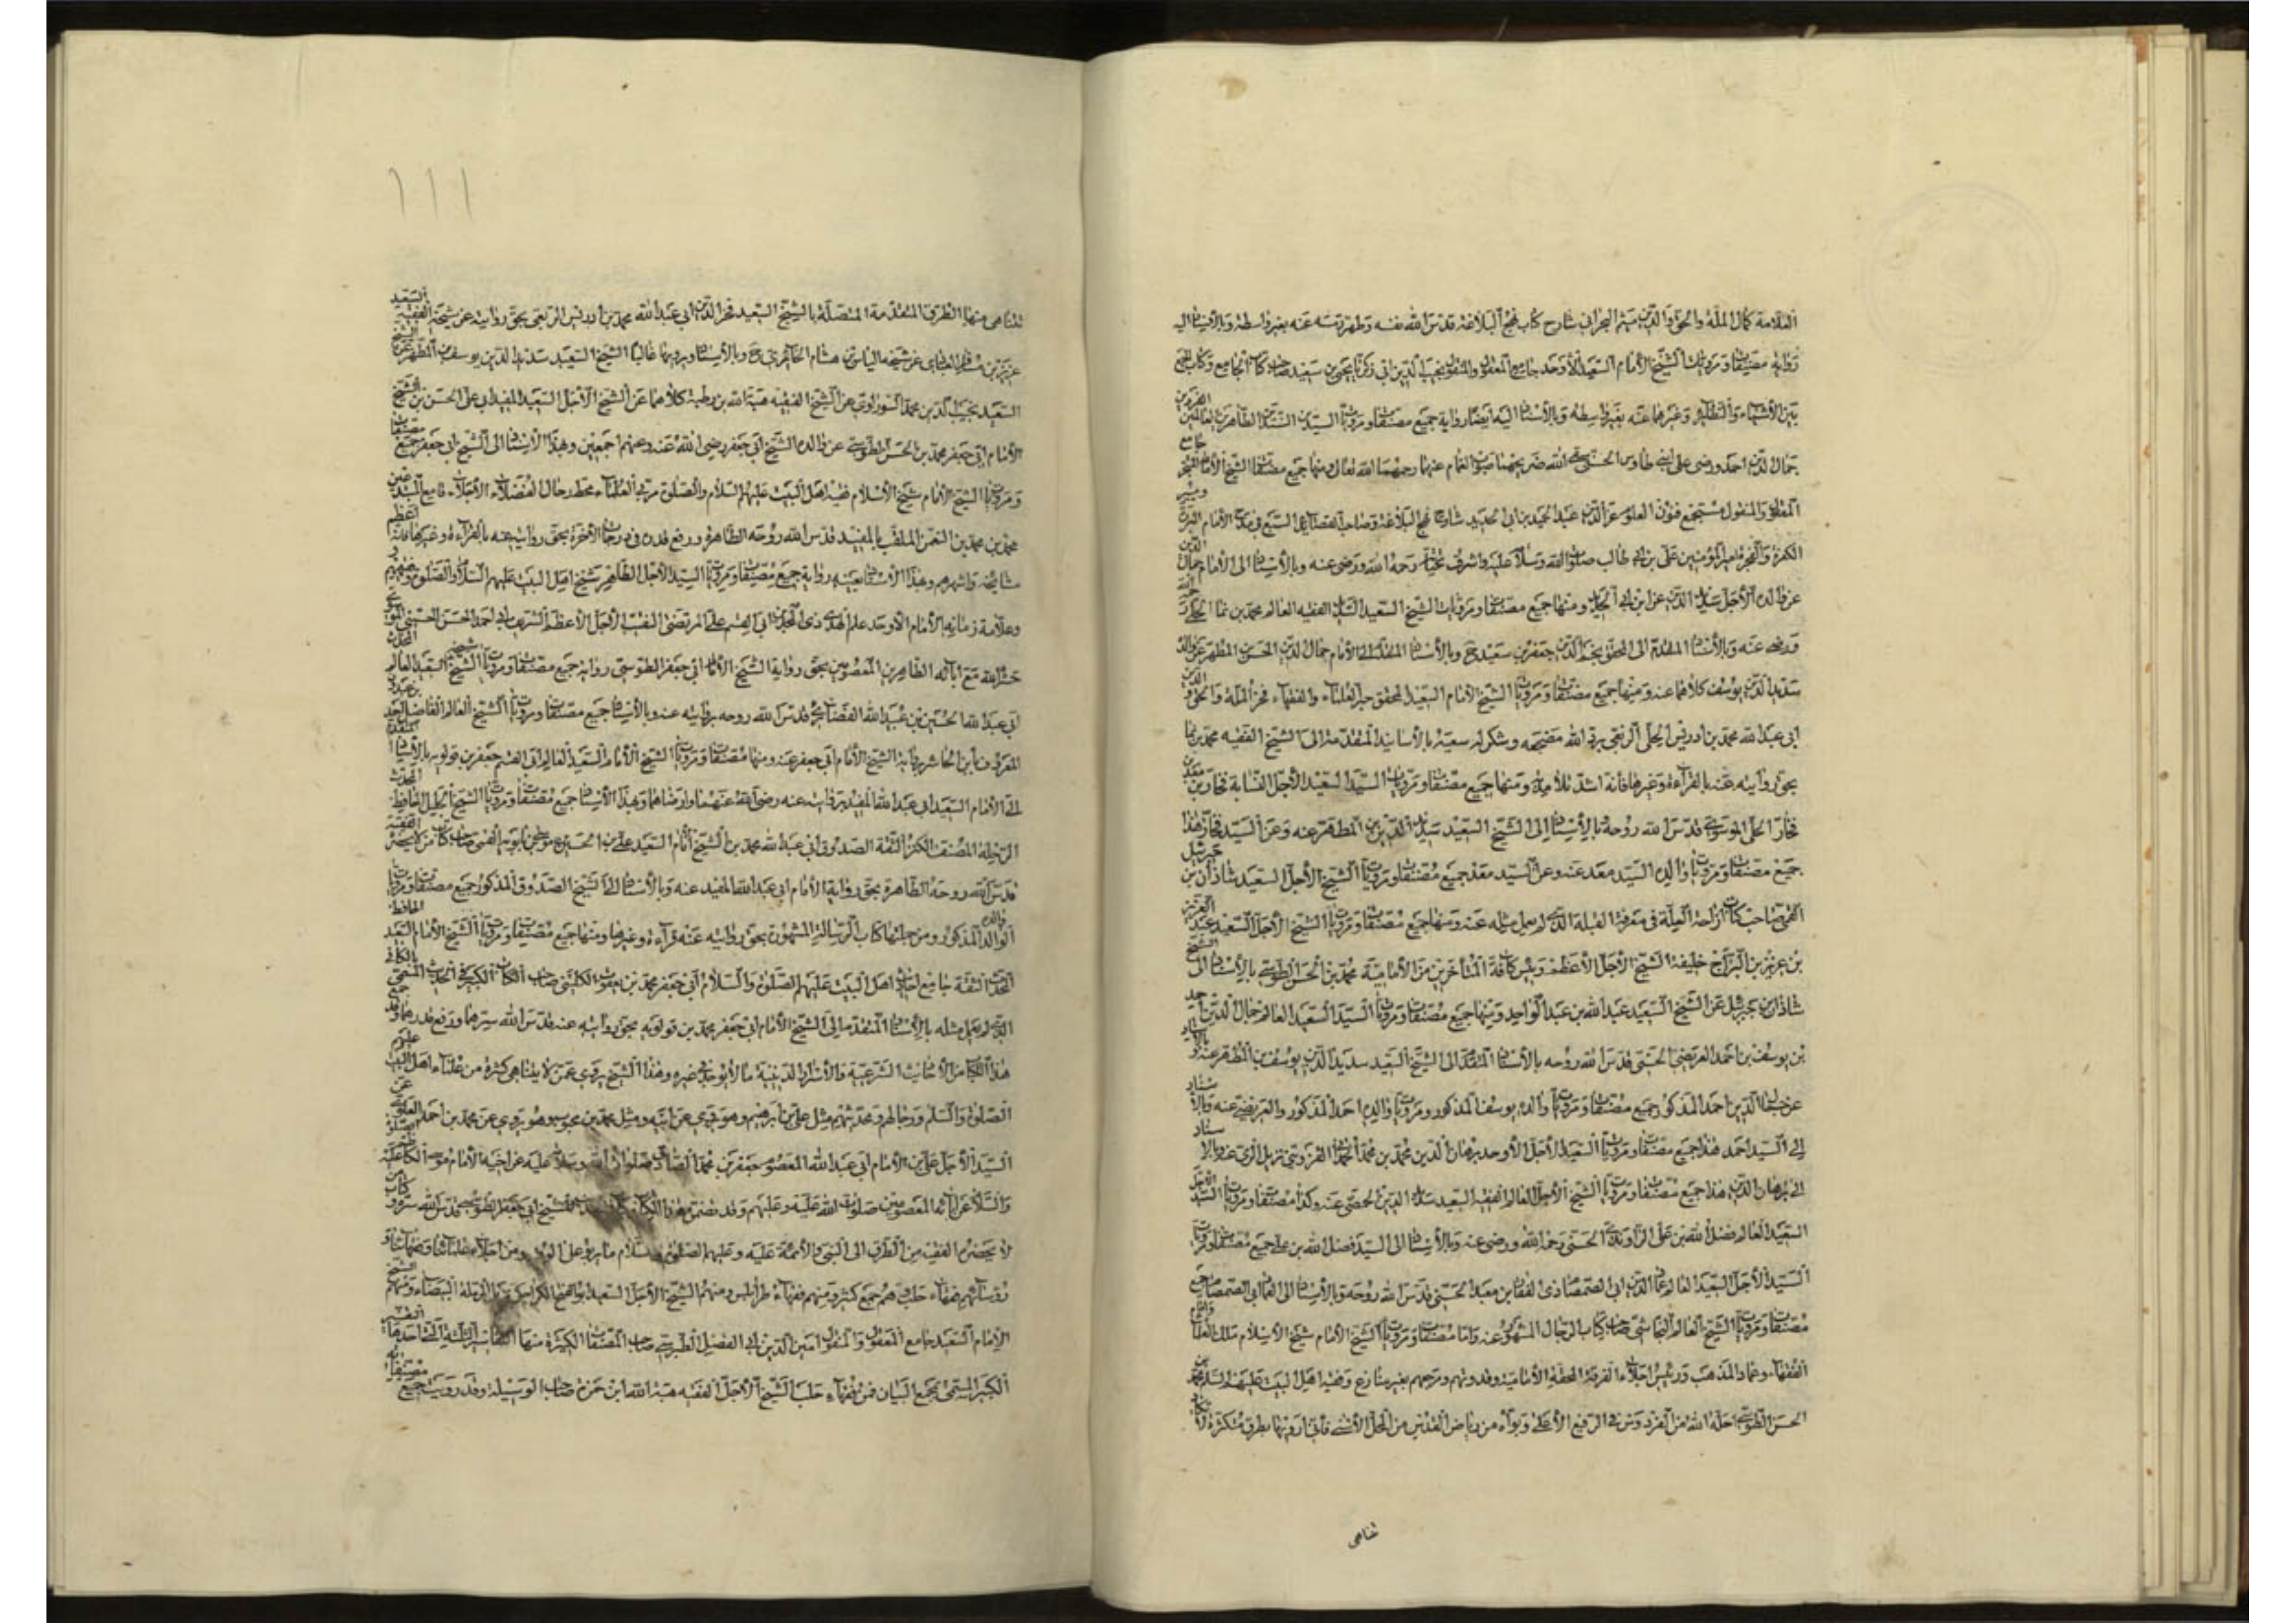 العلامة كمال الملة والحق والدين ميثم البحراني شارح كتاب نهج البلاغة قدس الله نفسه وطهر رمسه عنه بغير واسطة وبالأسناد اليه
رواية مصنفات ومرويات الشيخ الأمام السعيد الأوحد جامع المعقول والمنقول نجيب الدين ابي زكريا يحيى بن سعيد صاحب كتاب الجامع وكتاب نزهة
بين الأشباه والنظائر وغيرهما عنه بغير واسطة وبالأسناد اليه ايضا رواية جميع مصنفات ومرويات السيدين السندين الطاهرين العالمين
جمال الدين احمد ورضى على ابني طاوس الحسنى الله ضريحهما صوب الغمام عنهما رحمهما الله تعالى ومنها جميع مصنفات الشيخ الأمام
المعقول والمنقول مستجمع فنون العلوم عز الدين عبد الحميد بن ابى الحديد شارح نهج البلاغة وصاحب القصائد السبع في مدح الأمام
الكرة والمجرة امير المؤمنين على بن ابي طالب صلوات الله وسلامه عليه واشرف تحياته رحمه الله ورضى عنه وبالأسناد الى الأمام جمال الدين
عن والده الأجل سديد الدين عن ابن ابي الحديد ومنها جميع مصنفات ومرويات الشيخ السعيد الفقيه العالم محمد بن نما الحلى
ورضى عنه وبالأسناد المقدم الى المحقق نجم الدين جعفر بن سعيد وبالأسناد المتقدم الى الأمام جمال الدين الحسن المطهر عن والده
سديد الدين يوسف كلاهما عنه ومنها جميع مصنفات ومرويات الشيخ الأمام السعيد المحقق حبر العلماء والفقهاء فخر الملة والحق والدين
ابى عبد الله محمد بن ادريس الحلى الربعى برد الله مضجعه وشكر له سعيه بالأسانيد المتقدمة الى الشيخ الفقيه محمد بن نما
بحق روايته عنه بالقراءة وغيرها فانه اشد تلامذته ومنها جميع مصنفات ومرويات السيد السعيد الأجل النسابة فخار بن معد بن
فخار الحلى الموسوى قدس الله روحه بالأسناد إلى الشيخ السعيد سديد الدين بن المطهر عنه وعن السيد فخار هذا
جميع مصنفات ومرويات والده السيد معد عنه وعن السيد معد جميع مصنفات ومرويات الشيخ الأجل السعيد شاذان بن جبرئيل
القمى صاحب كتاب ازاحة العلة في معرفة القبلة الذى لم يعمل مثله عنه ومنها جميع مصنفات ومرويات الشيخ الأجل السعيد عبد العزيز
بن عزيز بن البراج خليفة الشيخ الأجل الأعظم ورئيس كافة المتأخرين من الأمامية محمد بن الحسن الطوسى بالأسناد الى الشيخ
شاذان بن جبرئيل عن الشيخ السعيد عبد الله بن عبد الواحد ومنها جميع مصنفات ومرويات السيد السعيد العالم جمال الدين احمد
بن يوسف بن احمد العريضى الحسنى قدس الله روحه بالأسناد المتقدم الى الشيخ السعيد سديد الدين يوسف بن المطهر عنه وبالأسناد
عن جمال الدين احمد المذكور جميع مصنفات ومرويات والده يوسف المذكور ومرويات والده احمد المذكور والعريضى عنه وبالأسناد
إلى السيد احمد هذا جميع مصنفات ومرويات السعيد الأجل الأوحد برهان الدين محمد بن محمد القزوينى نزيل الرى عنه وبالأسناد
الى برهان الدين هذا جميع مصنفات ومرويات الشيخ الأجل العالم الفقيه السعيد سديد الدين الحمصى عنه وكذا مصنفات ومرويات السيد الأجل
السعيد العالم فضل الله بن على الراوندى الحسنى رحمه الله ورضى عنه وبالأسناد الى السيد فضل الله بن على جميع مصنفات ومرويات
السيد الأجل السعيد العالم عماد الدين ابى الصمصام ذى الفقار بن معبد الحسنى قدس الله روحه وبالأسناد الى العماد ابى الصمصام جميع
مصنفات ومرويات الشيخ العالم النجاشى صاحب كتاب الرجال المشهور عنه واما مصنفات ومرويات الشيخ الأمام شيخ الأسلام ملك العلماء
الفقهاء وعماد المذهب ورئيس اجلاء الفرقة المحقة الأمامية وقدوتهم ومرجعهم بغير منازع وفقيه اهل البيت عليهم السلم محمد بن
الحسن الطوسى احله الله من الفردوس في الرفيع الأعلى وبوأه من رياض القدس من المحل الأسنى فأنى ارويها بطرق متكثرة لا تكاد
تتناهى
١١١
تتناهى منها الطرق المتقدمة المتصلة بالشيخ السعيد فخر الدين ابى عبد الله محمد بن ادريس الربعى بحق روايته عن شيخه الفقيه السعيد
عربى بن مسافر العبادى عن شيخه الياس بن هشام الحائرى وبالأسناد ويرويها غالبا الشيخ السعيد سديد الدين يوسف بن المطهر عن الشيخ
السعيد نجيب الدين محمد السوراوى عن الشيخ الفقيه هبة الله بن رطبة كلاهما عن الشيخ الأجل السعيد المفيد ابى على الحسن بن الشيخ
الأمام ابى جعفر محمد بن الحسن الطوسى عن والده الشيخ ابى جعفر رضى الله عنه وعنهم اجمعين وبهذا الأسناد الى الشيخ ابى جعفر جميع مصنفات
ومرويات الشيخ الأمام شيخ الأسلام فقيه اهل البيت عليهم السلام والصلوة مربى العلماء محط رحال الفضلاء الأجلاء قامع المبتدعين
محمد بن محمد بن النعمن الملقب بالمفيد قدس الله روحه الطاهرة ورفع قدره في درجات الآخرة بحق روايته عنه بالقراءة وغيرها فانه اعظم
مشائخه واشهرهم وبهذا الأسناد بعينه رواية جميع مصنفات ومرويات السيد الأجل الطاهر شيخ اهل البيت عليهم السلام والصلوة وفقيههم
وعلامة زمانه الأمام الأوحد علم الهدى ذى المجدين ابى القسم على المرتضى النقيب الأجل الأعظم الشريف ابى احمد الحسين الحسينى الموسوى
حشره الله مع آبائه الطاهرين المعصومين بحق رواية الشيخ الأمام ابى جعفر الطوسى رواية جميع مصنفات ومرويات شيخه الشيخ السعيد العالم المحدث
ابى عبد الله الحسين بن عبيد الله الغضائرى قدس الله روحه بروايته عنه وبالأسناد جميع مصنفات ومرويات الشيخ العالم الفاضل احمد بن عبدون
المعروف بابن الحاشر برواية الشيخ الأمام ابى جعفر عنه ومنها مصنفات ومرويات الشيخ الأمام السعيد العالم ابى القسم جعفر بن قولويه بالأسناد المتقدم
الى الأمام السعيد ابى عبد الله المفيد بروايته عنه رضى الله عنهما وارضاهما وبهذا الأسناد جميع مصنفات ومرويات الشيخ الجليل الحافظ المحدث
الرحلة المصنف المكثر الثقة الصدوق ابى عبد الله محمد بن الشيخ الأمام السعيد على بن الحسين بن موسى بن بابويه القمى صاحب كتاب من لا يحضره الفقيه
قدس الله روحه الطاهرة بحق رواية الأمام ابى عبد الله المفيد عنه وبالأسناد الى الشيخ الصدوق المذكور جميع مصنفات ومرويات
والده الوالد المذكور ومن جملتها كتاب الرسالة المشهورة بحق روايته عنه قراءة وغيرها ومنها جميع مصنفات ومرويات الشيخ الأمام السعيد الحافظ
المحدث الثقة جامع احاديث اهل البيت عليهم الصلوة والسلام ابى جعفر محمد بن يعقوب الكلينى صاحب الكتاب الكبير في الحديث المسمى بالكافى
الذى لم يعمل مثله بالأسناد المتقدم الى الشيخ الأمام ابى جعفر محمد بن قولويه بحق روايته عنه قدس الله سرهما ورفع قدرهما وقد جمع
هذا الكتاب من الأحاديث الشرعية والأسرار الدينية ما لا يوجد في غيره وهذا الشيخ يروى عمن لا يتناهى كثرة من علماء اهل البيت عليهم
الصلوة والسلم ورجالهم ومحدثيهم مثل على بن ابرهيم وهو يروى عن ابيه ومثل محمد بن محبوب وهو يروى عن محمد بن احمد العلوى عن
السيد الأجل على بن الأمام ابى عبد الله المعصوم جعفر بن محمد الصادق صلوات الله وسلامه عليه عن اخيه الأمام موسى الكاظم عليه الصلوة
والسلام عن آبائه المعصومين صلوات الله عليه وعليهم وقد تضمن هذا الكتاب للشيخ ابى جعفر الطوسى قدس الله سره وكتاب من
لا يحضره الفقيه من الطرق الى النبى والأئمة عليه وعليهم الصلوة والسلام ما يربو على ومن اجلاء علمائنا وفقهائنا و
رؤسائهم فقهاء حلب وهم جمع كثير ومنهم فقهاء طرابلس ومنهم الشيخ الأجل السعيد ابو الفتح الكراجكى نزيل الرملة البيضاء ومنهم الشيخ
الأمام السعيد جامع المعقول والمنقول امين الدين ابى الفضل الطبرسى صاحب المصنفات الكثيرة منها الثلثة التى احدها التفسير
الكبير المسمى بمجمع البيان فمن فقهاء حلب الشيخ الأجل الفقيه هبة الله ابن حمزة صاحب الوسيلة وقد رويت جميع مصنفاته